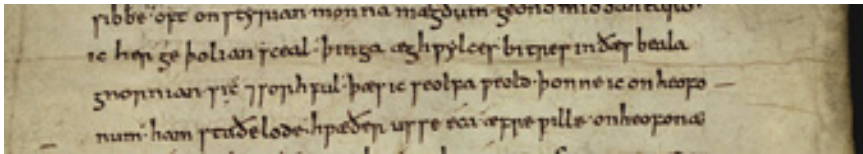 sibbe· oft onstyrian monna mægðum· geond
ic her ge þolian sceal· þinga æghƿylces bitres in ðæs beala
gnornian· sic ⁊ sorhful· þæs ic seolfa ƿeold· þonne ic on heofo
num· ham staðelode· hƿæðer us se eca æfre ƿille· on heofona